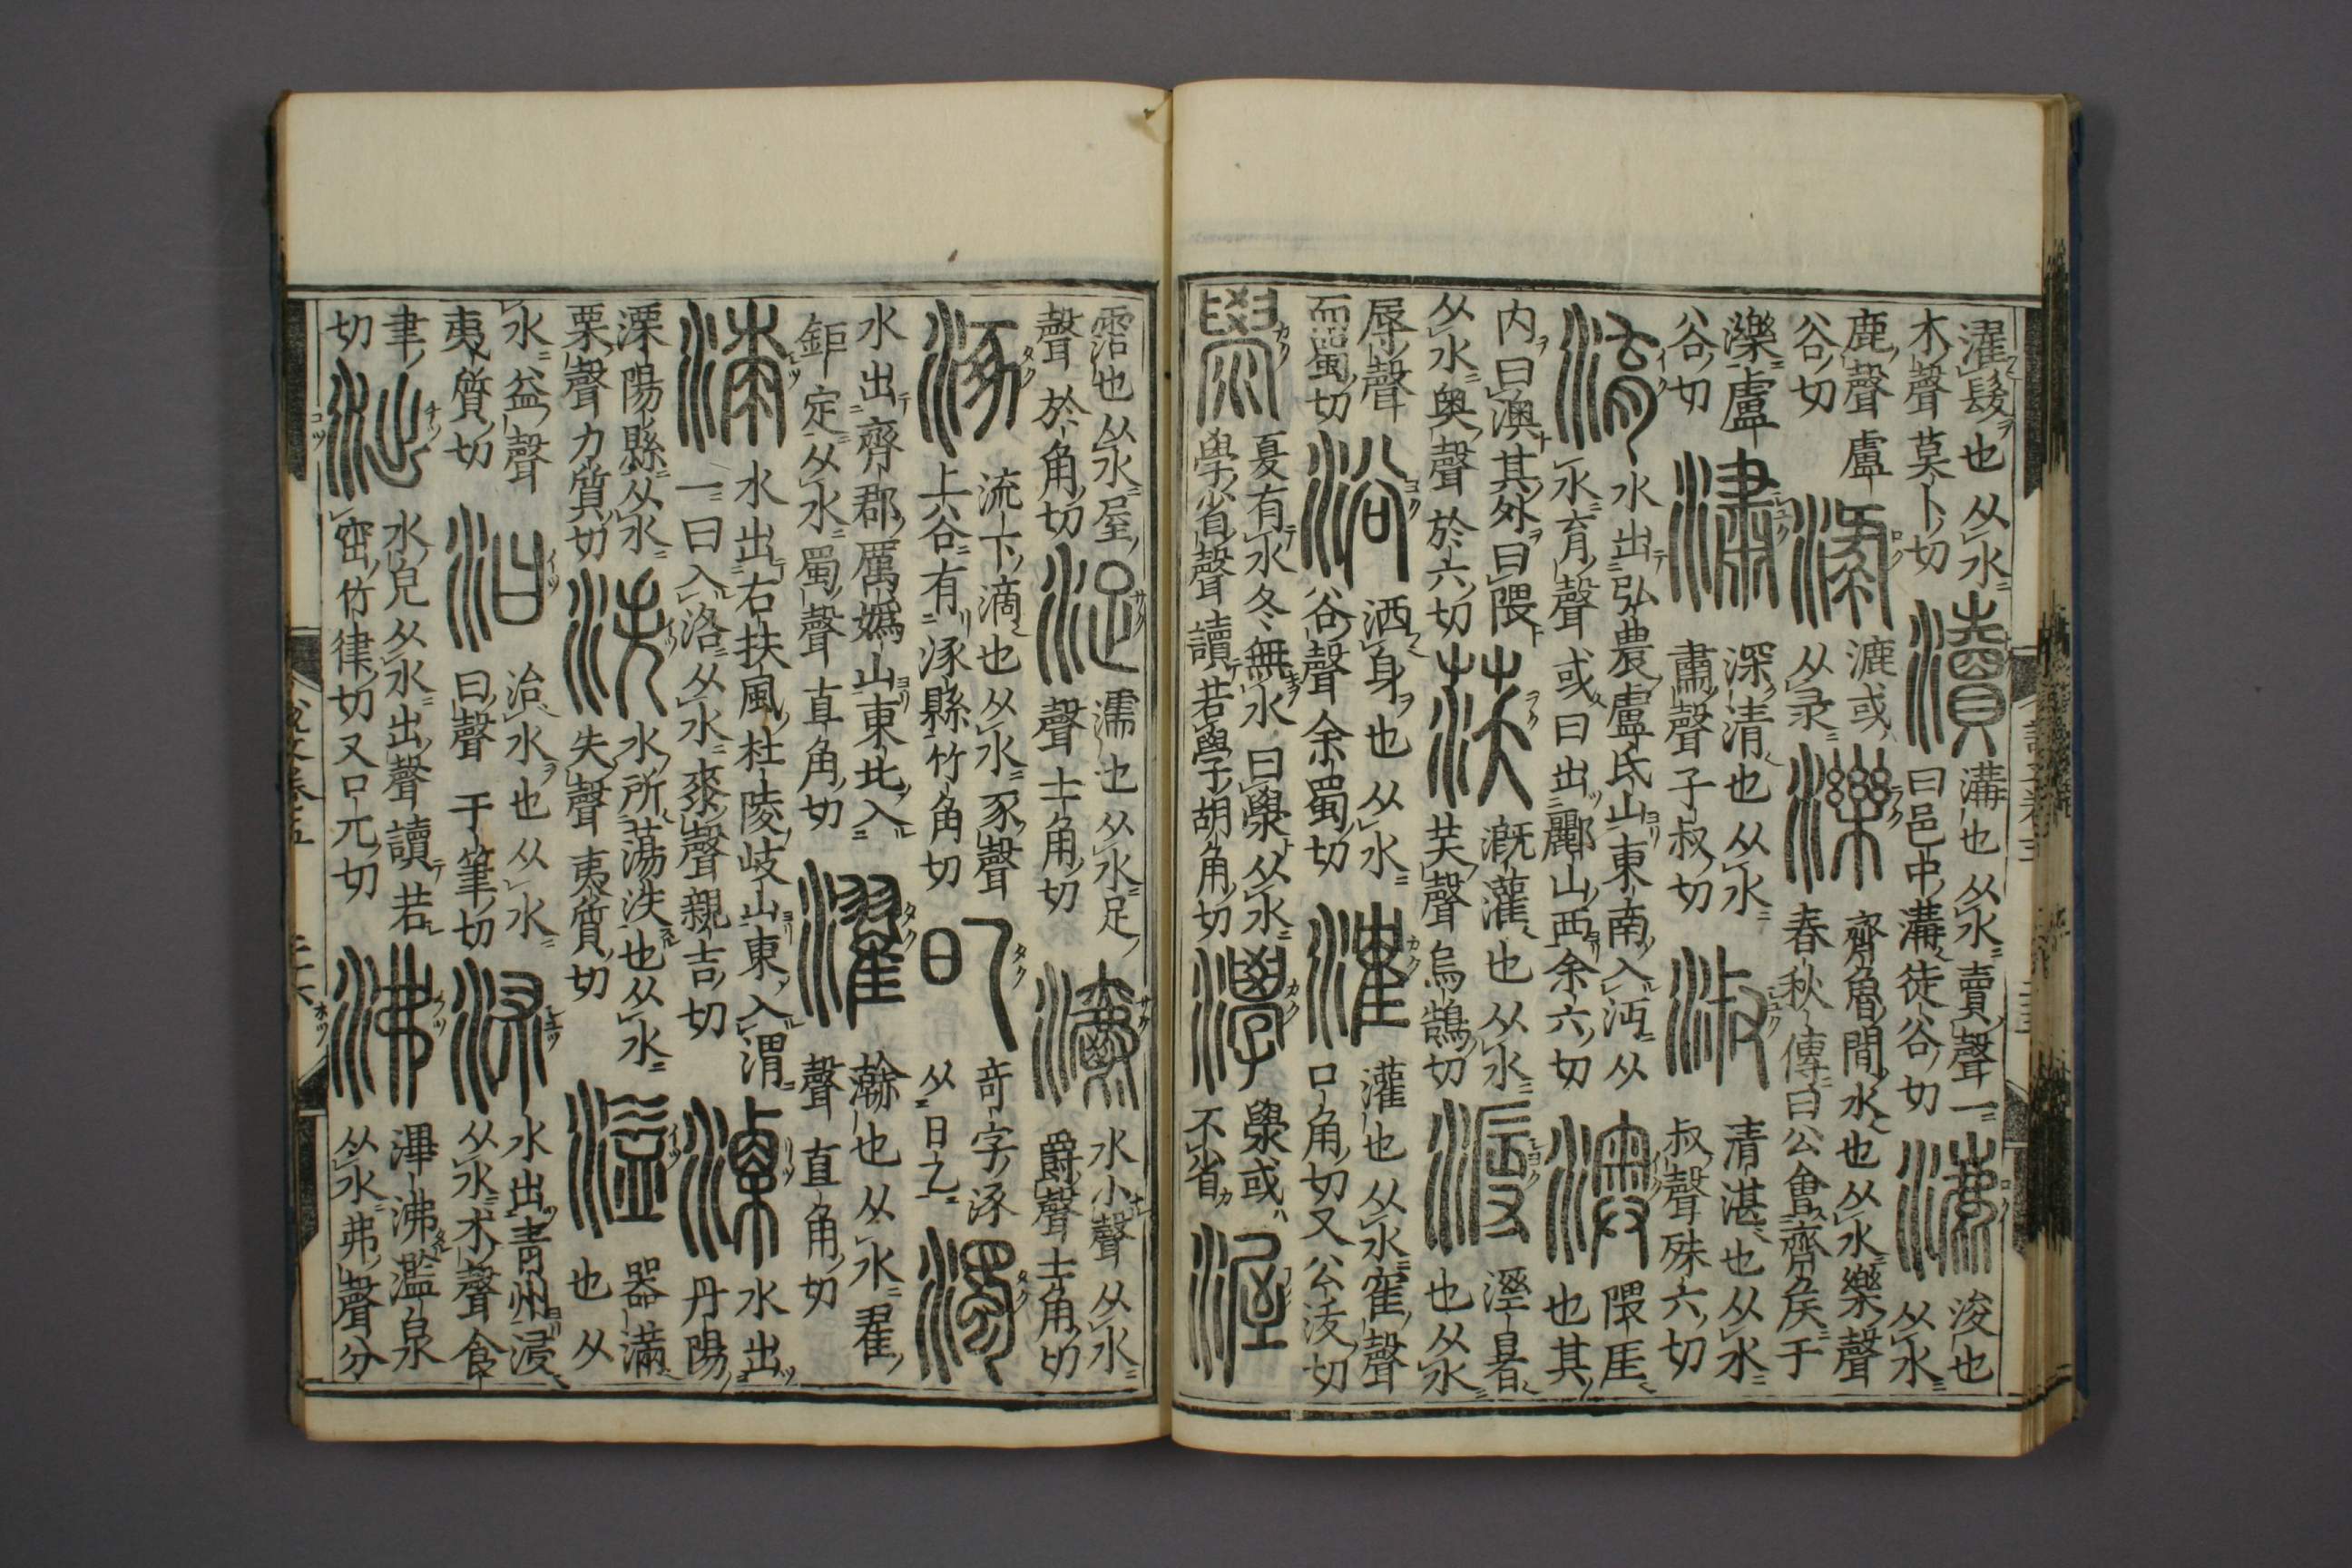 濯髮也从水
木聲莫卜切
瀆
溝也从水賣聲一
曰邑中溝徒谷切
漉
浚也
从水
鹿聲盧
谷切
淥
漉或
从录
濼
齊魯間水也从水樂聲
春秋傳曰公會齊矦于
濼盧
谷切
潚
深清也从水
肅聲子叔切
淑
清湛也从水
叔聲殊六切
淯
水出弘農盧氏山東南入沔从
水育聲或曰出酈山西余六切
澳
隈厓
也其
内曰澳其外曰隈
从水奥聲於六切
漑灌也从水
芺聲烏鵠切
溽
溼暑
也从水
辱聲
而蜀切
浴
洒身也从水
谷聲余蜀切
灌也从水隺聲
口角切又公沃切
澩
夏有水冬無水曰澩从水
學省聲讀若學胡角切
澩或
不省
渥
霑也从水屋
聲於角切
浞
濡也从水足
聲士角切
灂
水小聲从水
爵聲士角切
涿
流下滴也从水豖聲
上谷有涿縣竹角切
奇字涿
从日乙
濁
水出齊郡厲嬀山東北入
鉅定从水蜀聲直角切
濯
瀚也从水翟
聲直角切
漆
水出右扶風杜陵岐山東入渭
一曰入洛从水桼聲親吉切
溧
水出
丹陽
溧陽縣从水
栗聲力質切
泆
水所蕩泆也从水
失聲夷質切
溢
器滿
也从
水益聲
夷質切
汩
治水也从水
曰聲于筆切
沭
水出青州浸
从水术聲食
聿
切
泏
水皃从水出聲讀若
窋竹律切又口兀切
沸
滭沸濫泉
从水弗聲分